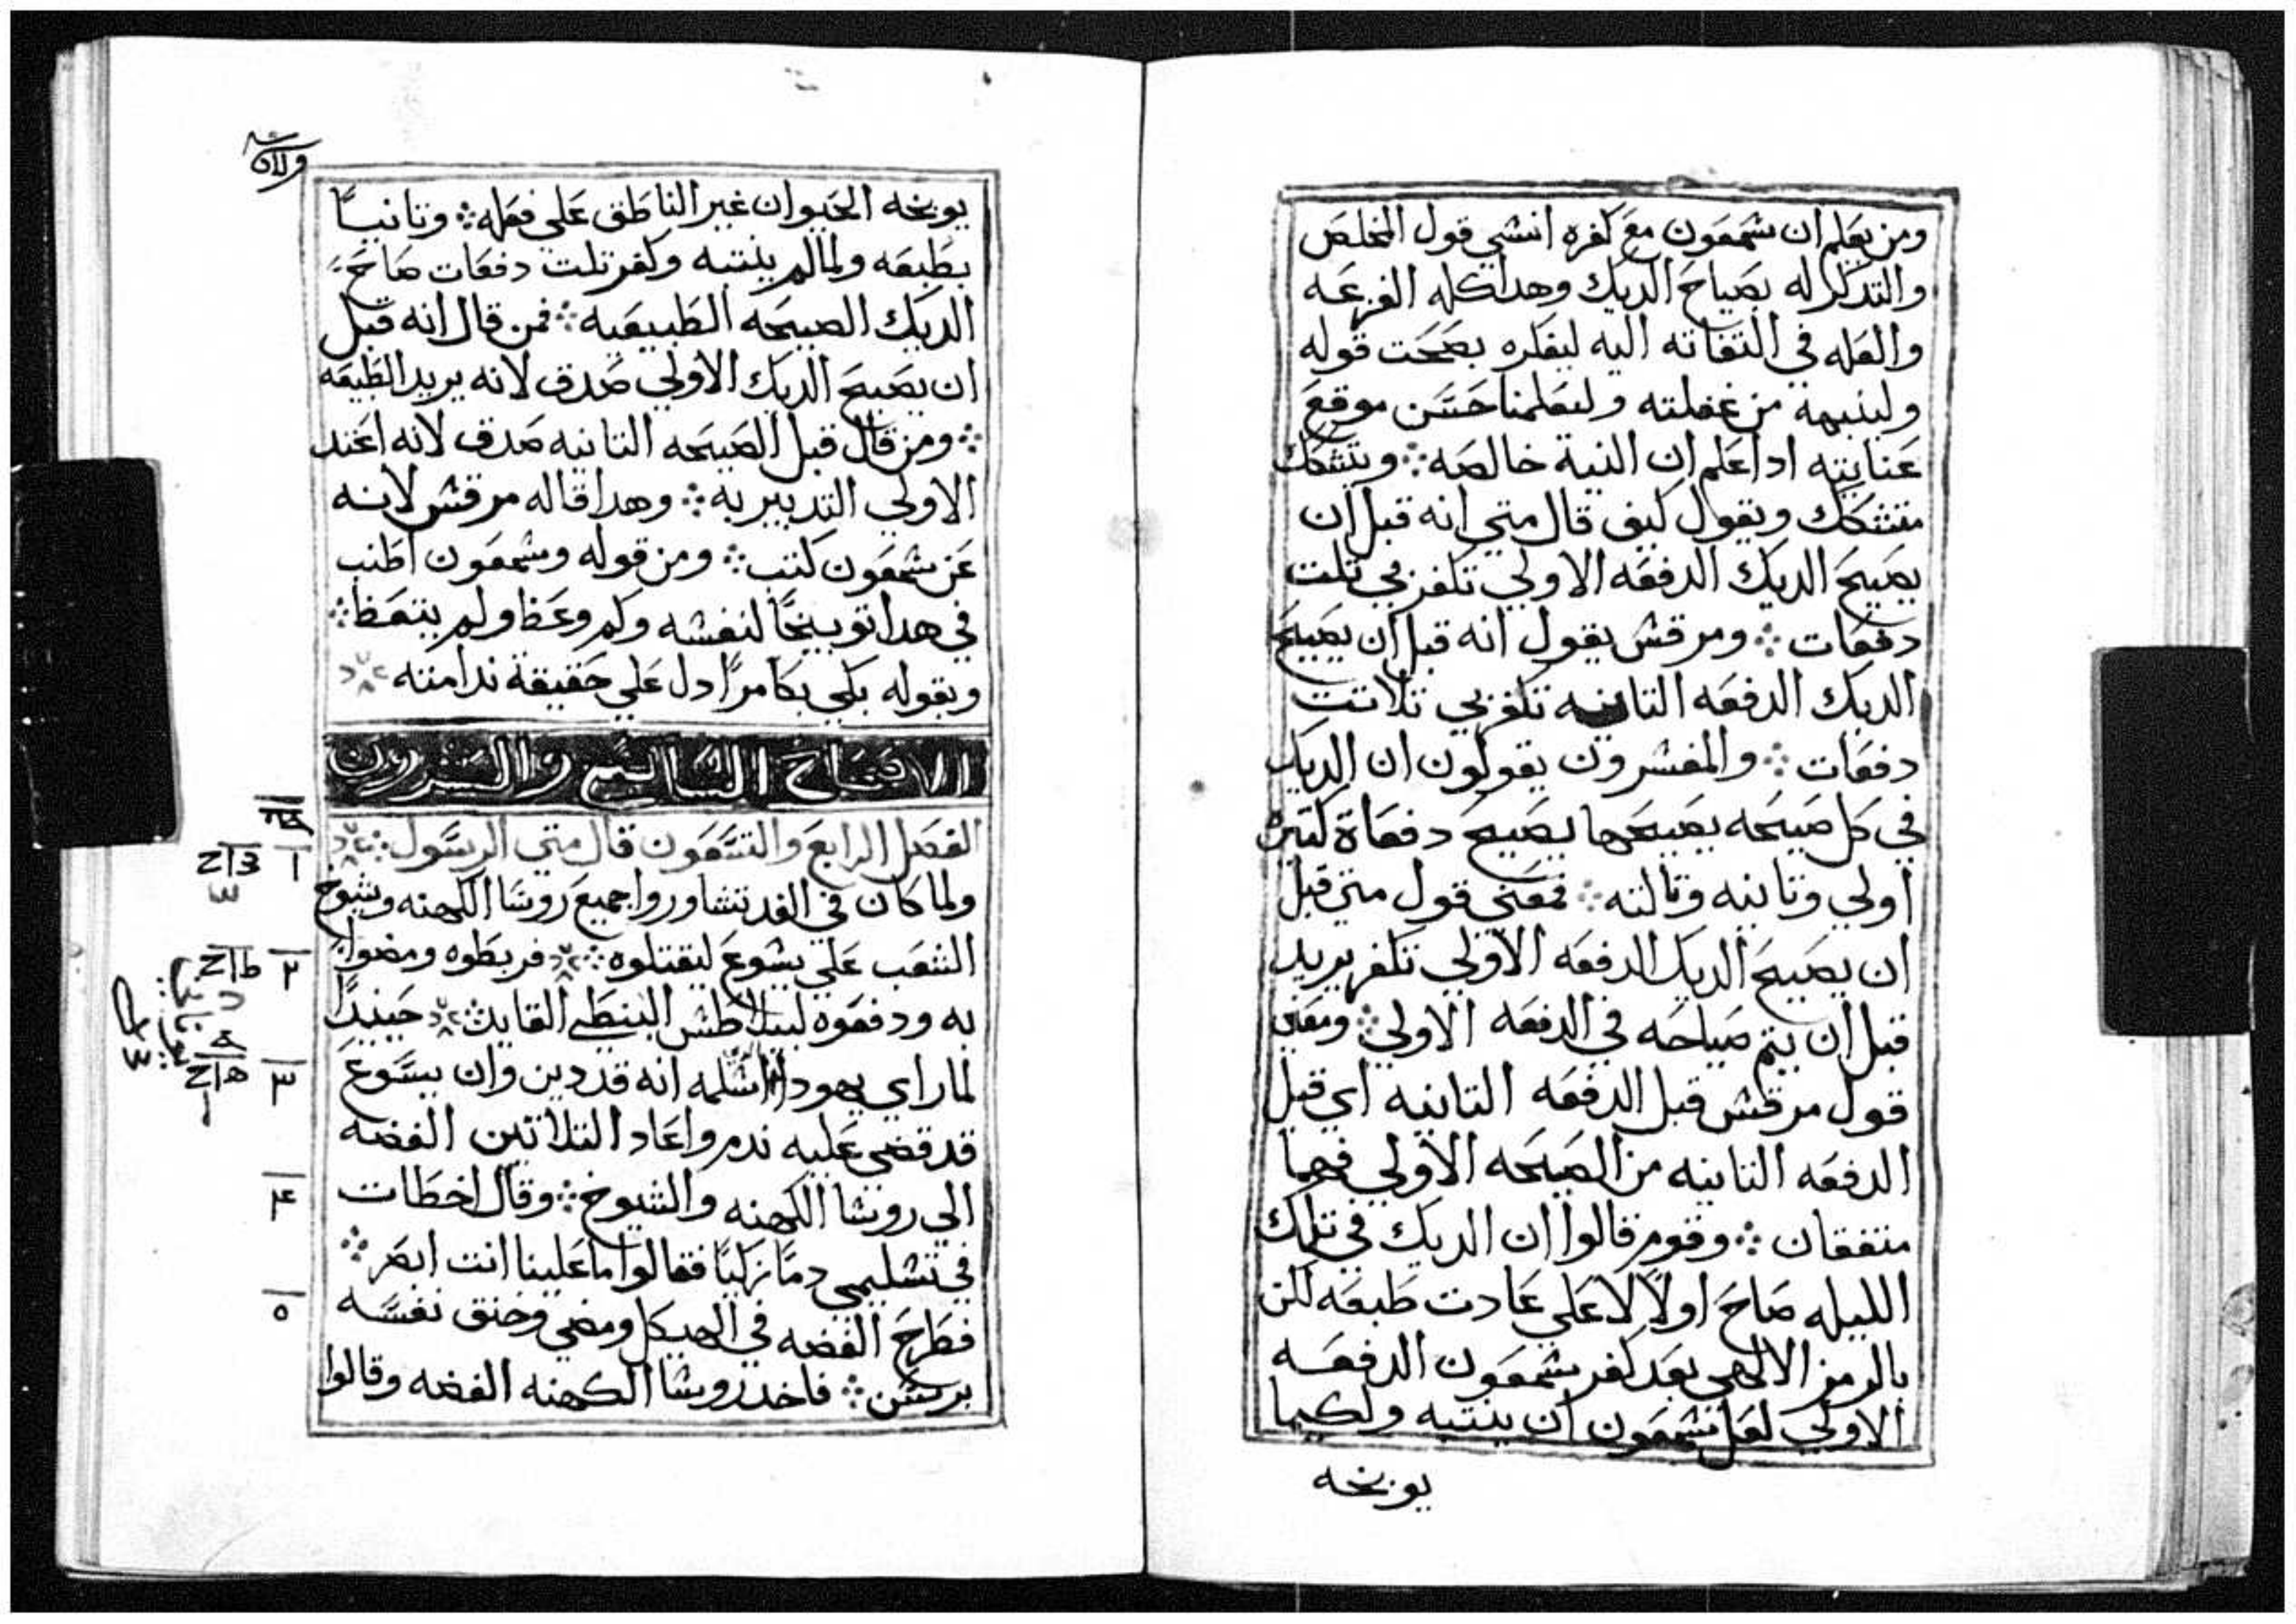 ومن يعلم ان شمعون مع كفره انسي قول المخلص
والتدكر له بصياح الديك وهدا كله الفزعه
والعله في التفاته اليه ليفكره بصحت قوله
ولينبهه من غفلته وليعلمنا حسن موقع
عنايته ادا علم ان النية خالصه ؞ ويتشكك
متشكك ويقول كيف قال متي انه قبل ان
يصيح الديك الدفعه الاولي تكفر بي تلت
دفعات ؞ ومرقس يقول انه قبل ان يصيح
الديك الدفعه التانيه تكفر بي تلاتت
دفعات ؞ والمفسرون يقولون ان الديك
في كل صيحه يصيحها يصيح دفعاة كتيره
اولي وتانيه وتالته ؞ فمعني قول متي قبل
ان يصيح الديك الدفعه الاولي تكفر يريد
قبل ان يتم صياحه في الدفعه الاولي ؞ ومعني
قول مرقس قبل الدفعه التانيه اي قبل
الدفعه التانيه من الصيحه الاولي فهما
متفقان ؞ وقوم قالوا ان الديك في تلك
الليله صاح اولاً لا علي عادت طبعه لكن
بالرمز الالهي بعد كفر شمعون الدفعه
الاولي لعل شمعون ان ينتبه ولكيما
يوبخه
يوبخه الحيوان غير الناطق علي فعله ؞ وتانياً
بطبعه ولما لم ينتبه وكفر تلت دفعات صاح
الديك الصيحه الطبيعيه ؞ فمن قال انه قبل
ان يصيح الديك الاولي صدق لانه يريد الطبيعه
؞ ومن قال قبل الصيحه التانيه صدق لانه اعتد
الاولي التدبيريه ؞ وهدا قاله مرقس لانه
عن شمعون كتب ؞ ومن قوله وشمعون اطنب
في هدا توبيخاً لنفسه وكم وعظ ولم يتعظ ؞
وبقوله بكي بكا مراً دل علي حقيقة ندامته
الاصحاح السابع والعشرون
الفصل الرابع والتسعون قال متي الرسول ؞
ولما كان في الغد تشاوروا جميع روسا الكهنه وشيوخ
الشعب علي يسوع ليقتلوه ؞ فربطوه ومضوا
به ودفعوه لبيلاطس البنطي القايد ؞ حينيداً
لما راي يهودا مسلمه انه قد دين وان يسوع
قد قضي عليه ندم واعاد التلاتين الفضه
الي روسا الكهنه والشيوخ ؞ وقال اخطات
في تسليمي دماً زكياً فقالوا ما علينا انت ابصر ؞
فطرح الفضه في الهيكل ومضي وخنق نفسه
برسن ؞ فاخد روسا الكهنه الفضه وقالوا
١
٢
٣
٤
٥